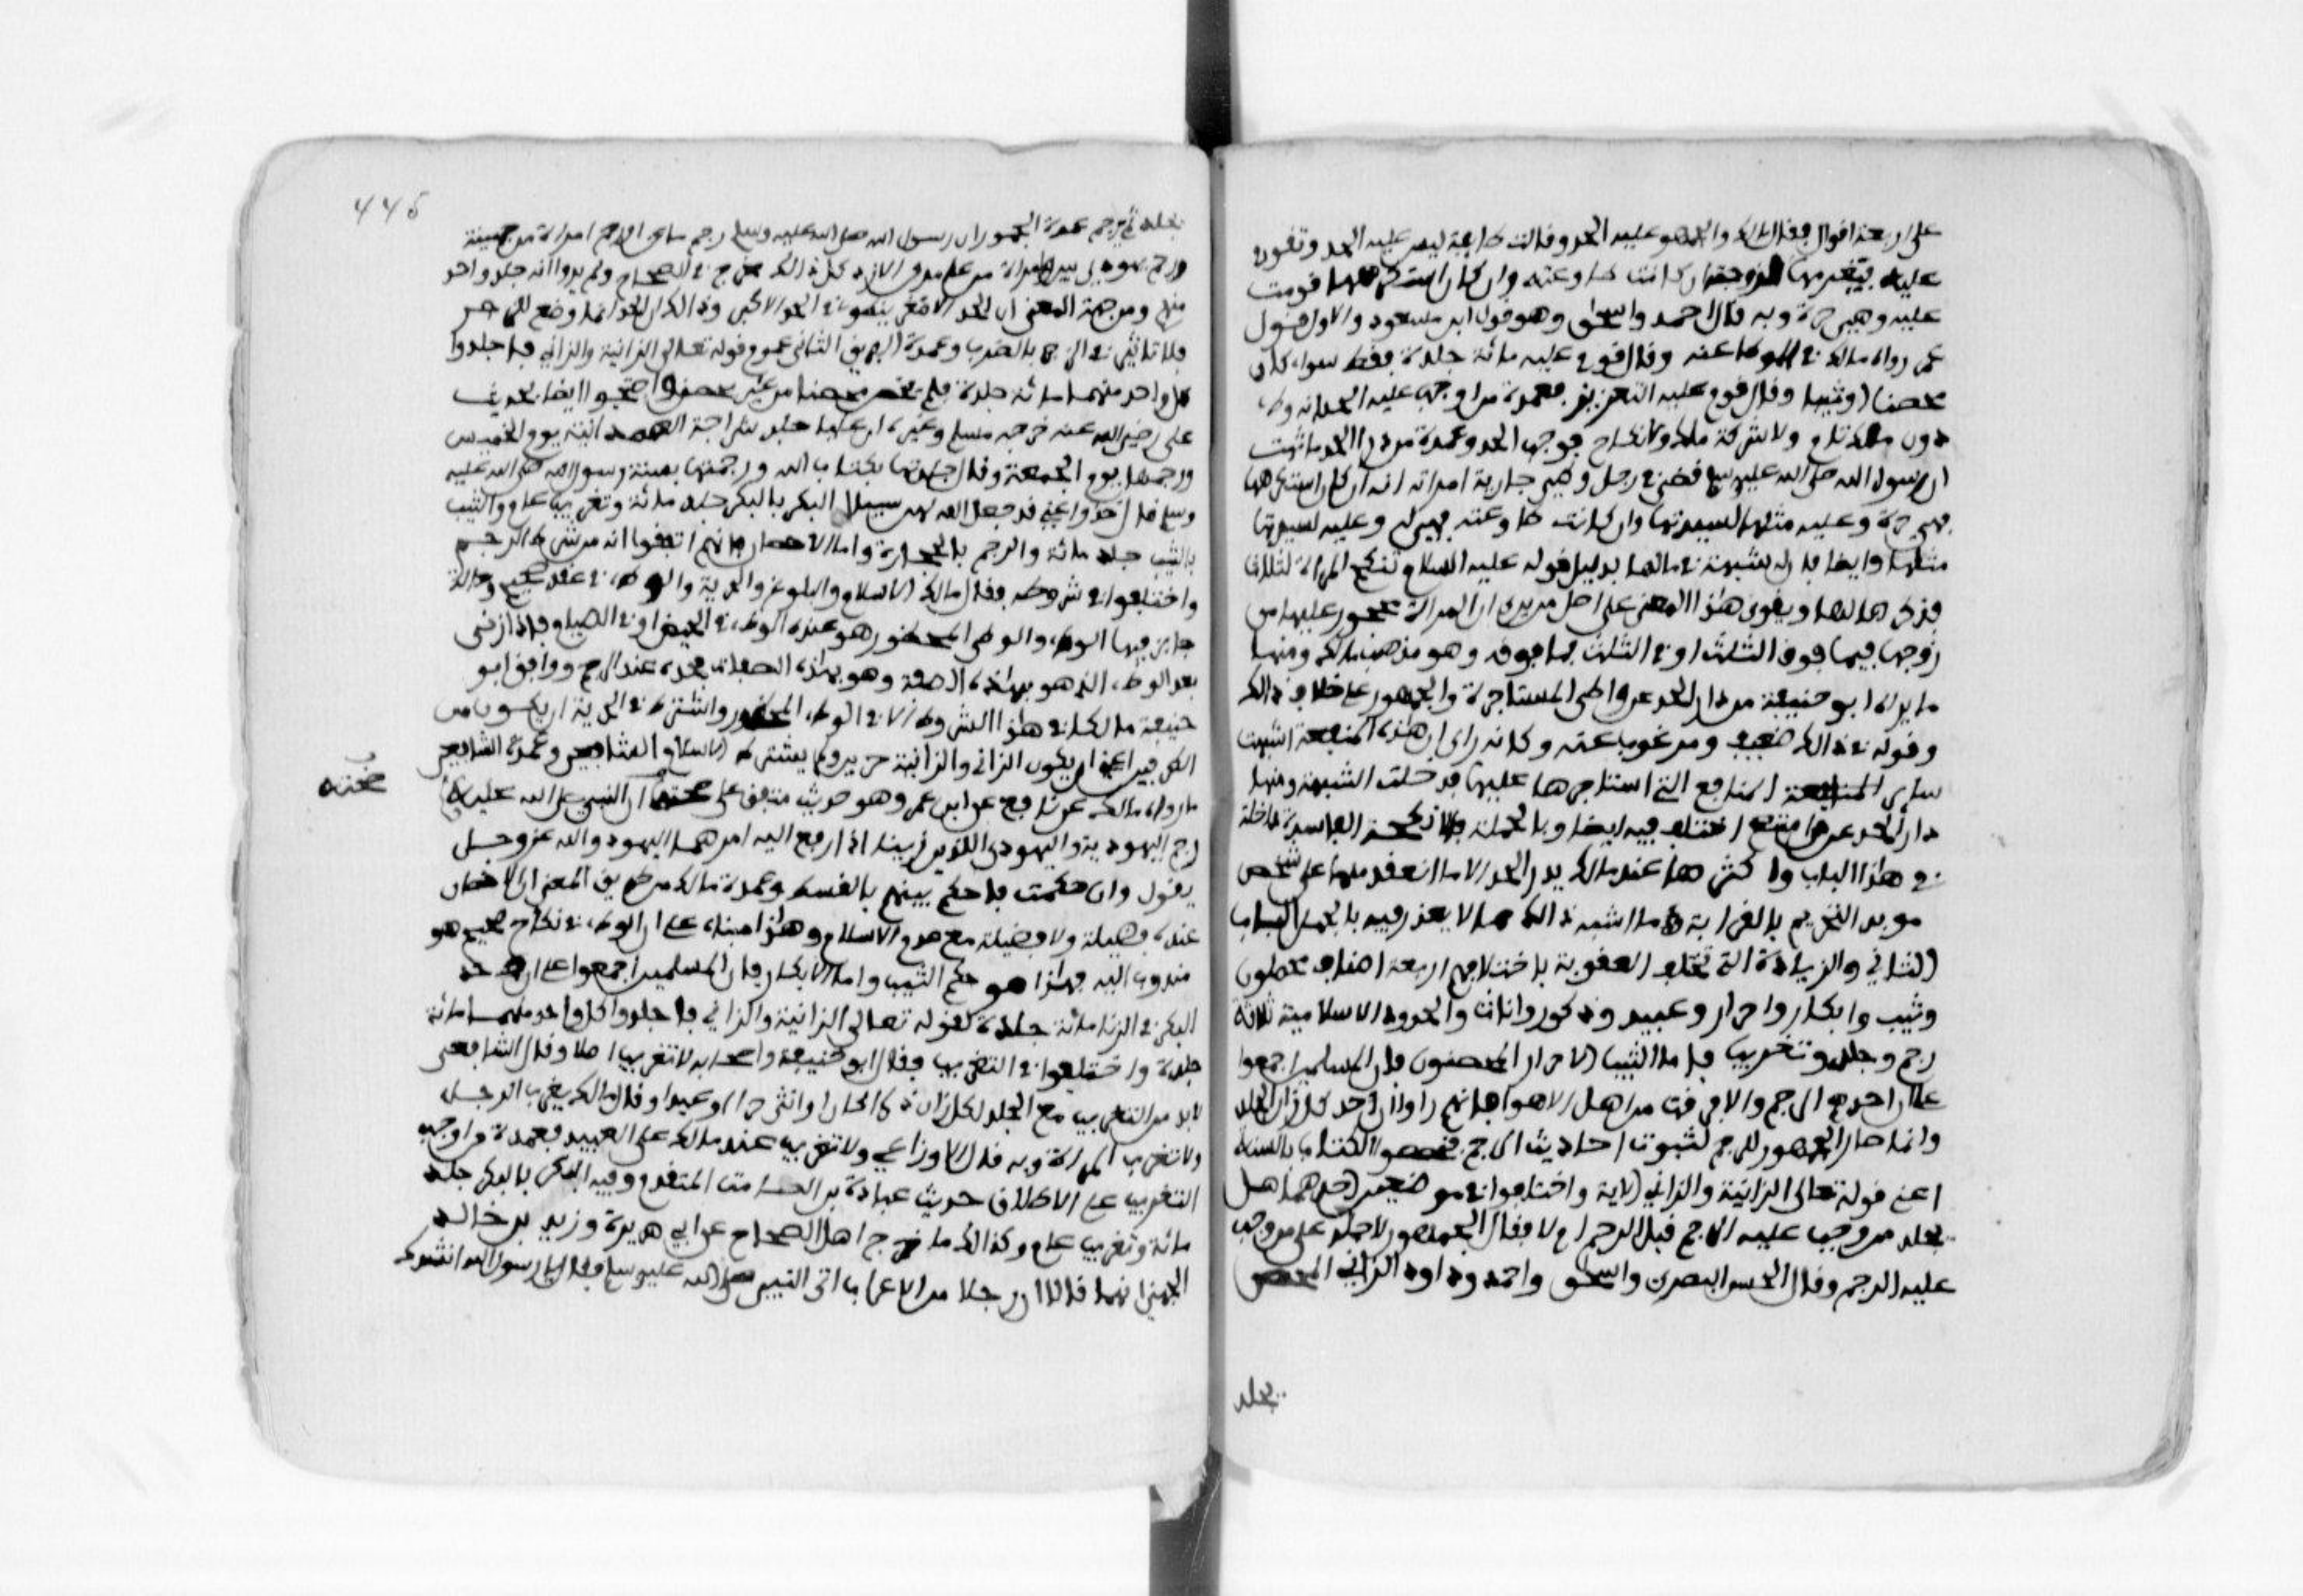 على اربعة اقوال فقال مالك والجمهور عليه الحد وقالت طايفة ليس عليه الحد وتقوم
عليه فيغرمها لزوجته ان كانت طاوعته وان كان استكرهها قومت
عليه وهي حرة وبه قال احمد واسحاق وهو قول ابن مسعود والاول قول
عمر رواه مالك في الموطا عنه وقال قوم عليه مائة جلدة فقط سواء كان
محصنا او ثيبا وقال قوم عليه التعزير فعمدة من اوجب عليه الحد انه وطء
دون ملك تام ولا شركة ملك ولا نكاح فوجب الحد وعمدة من درا الحد ما ثبت
ان رسول الله صلى الله عليه وسلم قضى في رجل وطى جارية امراته انه ان كان استكرهها
فهي حرة وعليه مثلها لسيدتها وان كانت طاوعته فهي له وعليه لسيدتها
مثلها وايضا فان له شبهة في مالها بدليل قوله عليه السلام تنكح المراة لثلاث
فذكر مالها ويقوى هذا المعنى على اصل من يرى ان المراة محجور عليها من
زوجها فيما فوق الثلث او في الثلث فما فوقه وهو مذهب مالك ومنها
ما يراه ابو حنيفة من درا الحد عن واطى المستاجرة والجمهور على خلاف ذالك
وقوله في ذالك ضعيف ومرغوب عنه وكانه راى ان هذه المنفعة اشبهت
ساير المنافع التي استاجرها عليها فدخلت الشبهة ومنها
درا الحد عن من امتنع اختلف فيه ايضا وبالجملة فالانكحة الفاسدة داخلة
في هذا الباب واكثرها عند مالك يدر الحد الا ما انعقد منها على شخص
موبد التحريم بالقرابة وما اشبه ذالك مما لا يعذر فيه بالجهل الباب
الثاني والزناة التي تختلف العقوبة باختلافهم اربعة اصناف محصنون
وثيب وابكار واحرار وعبيد وذكور واناث والحدود الاسلامية ثلاثة
رجم وجلد وتغريب فاما الثيب الاحرار المحصنون فان المسلمين اجمعوا
على ان حدهم الرجم والا فرقة من اهل الاهواء فانهم راوا ان حد كل زان الجلد
وانما صار الجمهور للرجم لثبوت احاديث الرجم فخصصوا الكتاب بالسنة
اعني قوله تعالى الزانية والزاني الاية واختلفوا في موضعين احدهما هل
يجلد من وجب عليه الرجم قبل الرجم ام لا فقال الجمهور لا جلد على من وجب
عليه الرجم وقال الحسن البصري واسحاق واحمد وداود الزاني المحصن
يجلد
446
يجلد ثم يرجم عمدة الجمهور ان رسول الله صلى الله عليه وسلم رجم ماعزا ورجم امراة من جهينة
ورجم يهوديين وامراة من عامر من الازد كل ذالك مخرج في الصحاح ولم يروا انه جلد واحدا
منهم ومن جهة المعنى ان الحد الاصغر ينطوي في الحد الاكبر وذالك ان الحد انما وضع للزجر
فلا تاثير في الزجر بالضرب وعمدة الفريق الثاني عموم قوله تعالى الزانية والزاني فاجلدوا
كل واحد منهما مائة جلدة فلم يخص محصنا من غير محصن واحتجوا ايضا بحديث
علي رضي الله عنه خرجه مسلم وغيره ان عليا جلد شراحة الهمدانية يوم الخميس
ورجمها يوم الجمعة وقال جلدتها بكتاب الله ورجمتها بسنة رسول الله صلى الله عليه
وسلم قال خذوا عني قد جعل الله لهن سبيلا البكر بالبكر جلد مائة وتغريب عام والثيب
بالثيب جلد مائة والرجم بالحجارة واما الاحصان فانهم اتفقوا انه من شرط الرجم
واختلفوا في شروطه فقال مالك الاسلام والبلوغ والحرية والوطء في عقد صحيح وحالة
جايز فيها الوطء والوطي المحظور هو عنده الوطء في الحيض او في الصيام فاذا زنى
بعد الوطء الذي هو بهذه الصفة وهو بهذه الصفات فحده عنده الرجم ووافق ابو
حنيفة مالكا في هذا الشروط الا في الوطء المحظور واشترط في الحرية ان يكون من
الطرفين اعني ان يكون الزاني والزانية حرين ولم يشترط الاسلام الشافعي وعمدة الشافعي
ما رواه مالك عن نافع عن ابن عمر وهو حديث متفق على صحته ان النبي صلى الله عليه
صحته
رجم اليهودية واليهودي اللذين زنيا اذ ارفع اليه امرهما اليهود والله عز وجل
يقول وان حكمت فاحكم بينهم بالقسط وعمدة مالك من طريق المعنى ان الاحصان
عنده فضيلة ولا فضيلة مع عدم الاسلام وهذا مبناه على ان الوطء في نكاح صحيح هو
مندوب اليه فهذا هو حكم الثيب واما الابكار فان المسلمين اجمعوا على ان حد
البكر في الزنا مائة جلدة لقوله تعالى الزانية والزاني فاجلدوا كل واحد منهما مائة
جلدة واختلفوا في التغريب فقال ابو حنيفة واصحابه لا تغريب اصلا وقال الشافعي
لابد من التغريب مع الجلد لكل زان ذكرا كان او انثى حرا او عبدا وقال مالك يغرب الرجل
ولا تغرب المراة وبه قال الاوزاعي ولا تغريب عند مالك على العبيد فعمدة من اوجب
التغريب على الاطلاق حديث عبادة بن الصامت المتقدم وفيه البكر بالبكر جلد
مائة وتغريب عام وكذالك ما خرج اهل الصحاح عن ابي هريرة وزيد بن خالد
الجهني انهما قالا ان رجلا من الاعراب اتى النبي صلى الله عليه وسلم فقال يا رسول الله انشدك